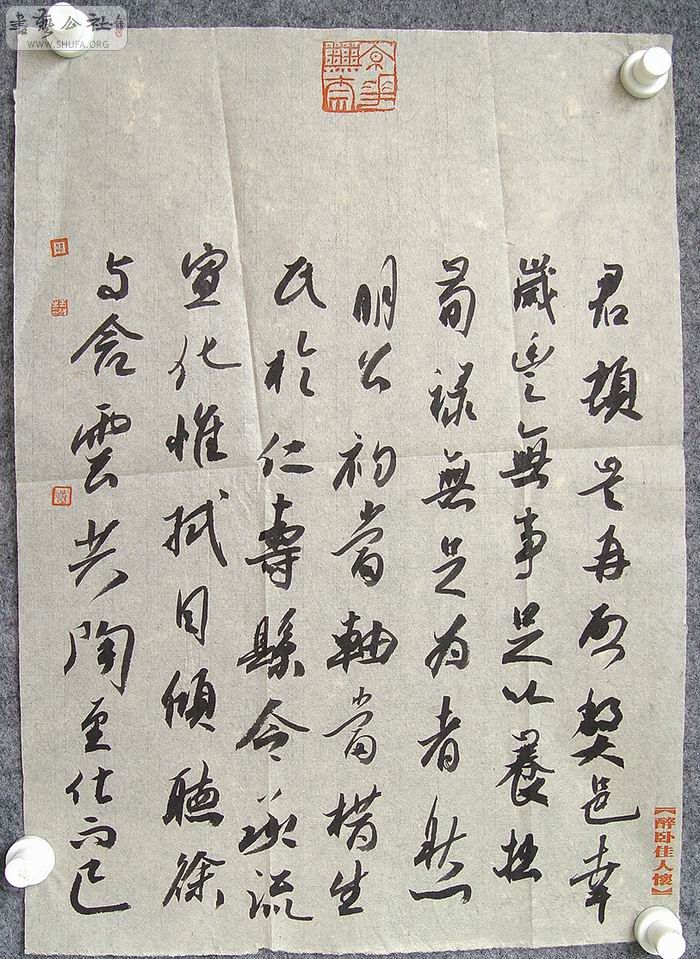 書藝公社
WWW.SHUFA.ORG
君頓首再啟獘邑幸
歲豐無事足以養拙
苟祿無足為者然
明公初當軸當措生
民於仁壽縣令承流
宣化惟拭目傾聽徐
与含雲共陶至仕而已
【醉卧佳人懷】